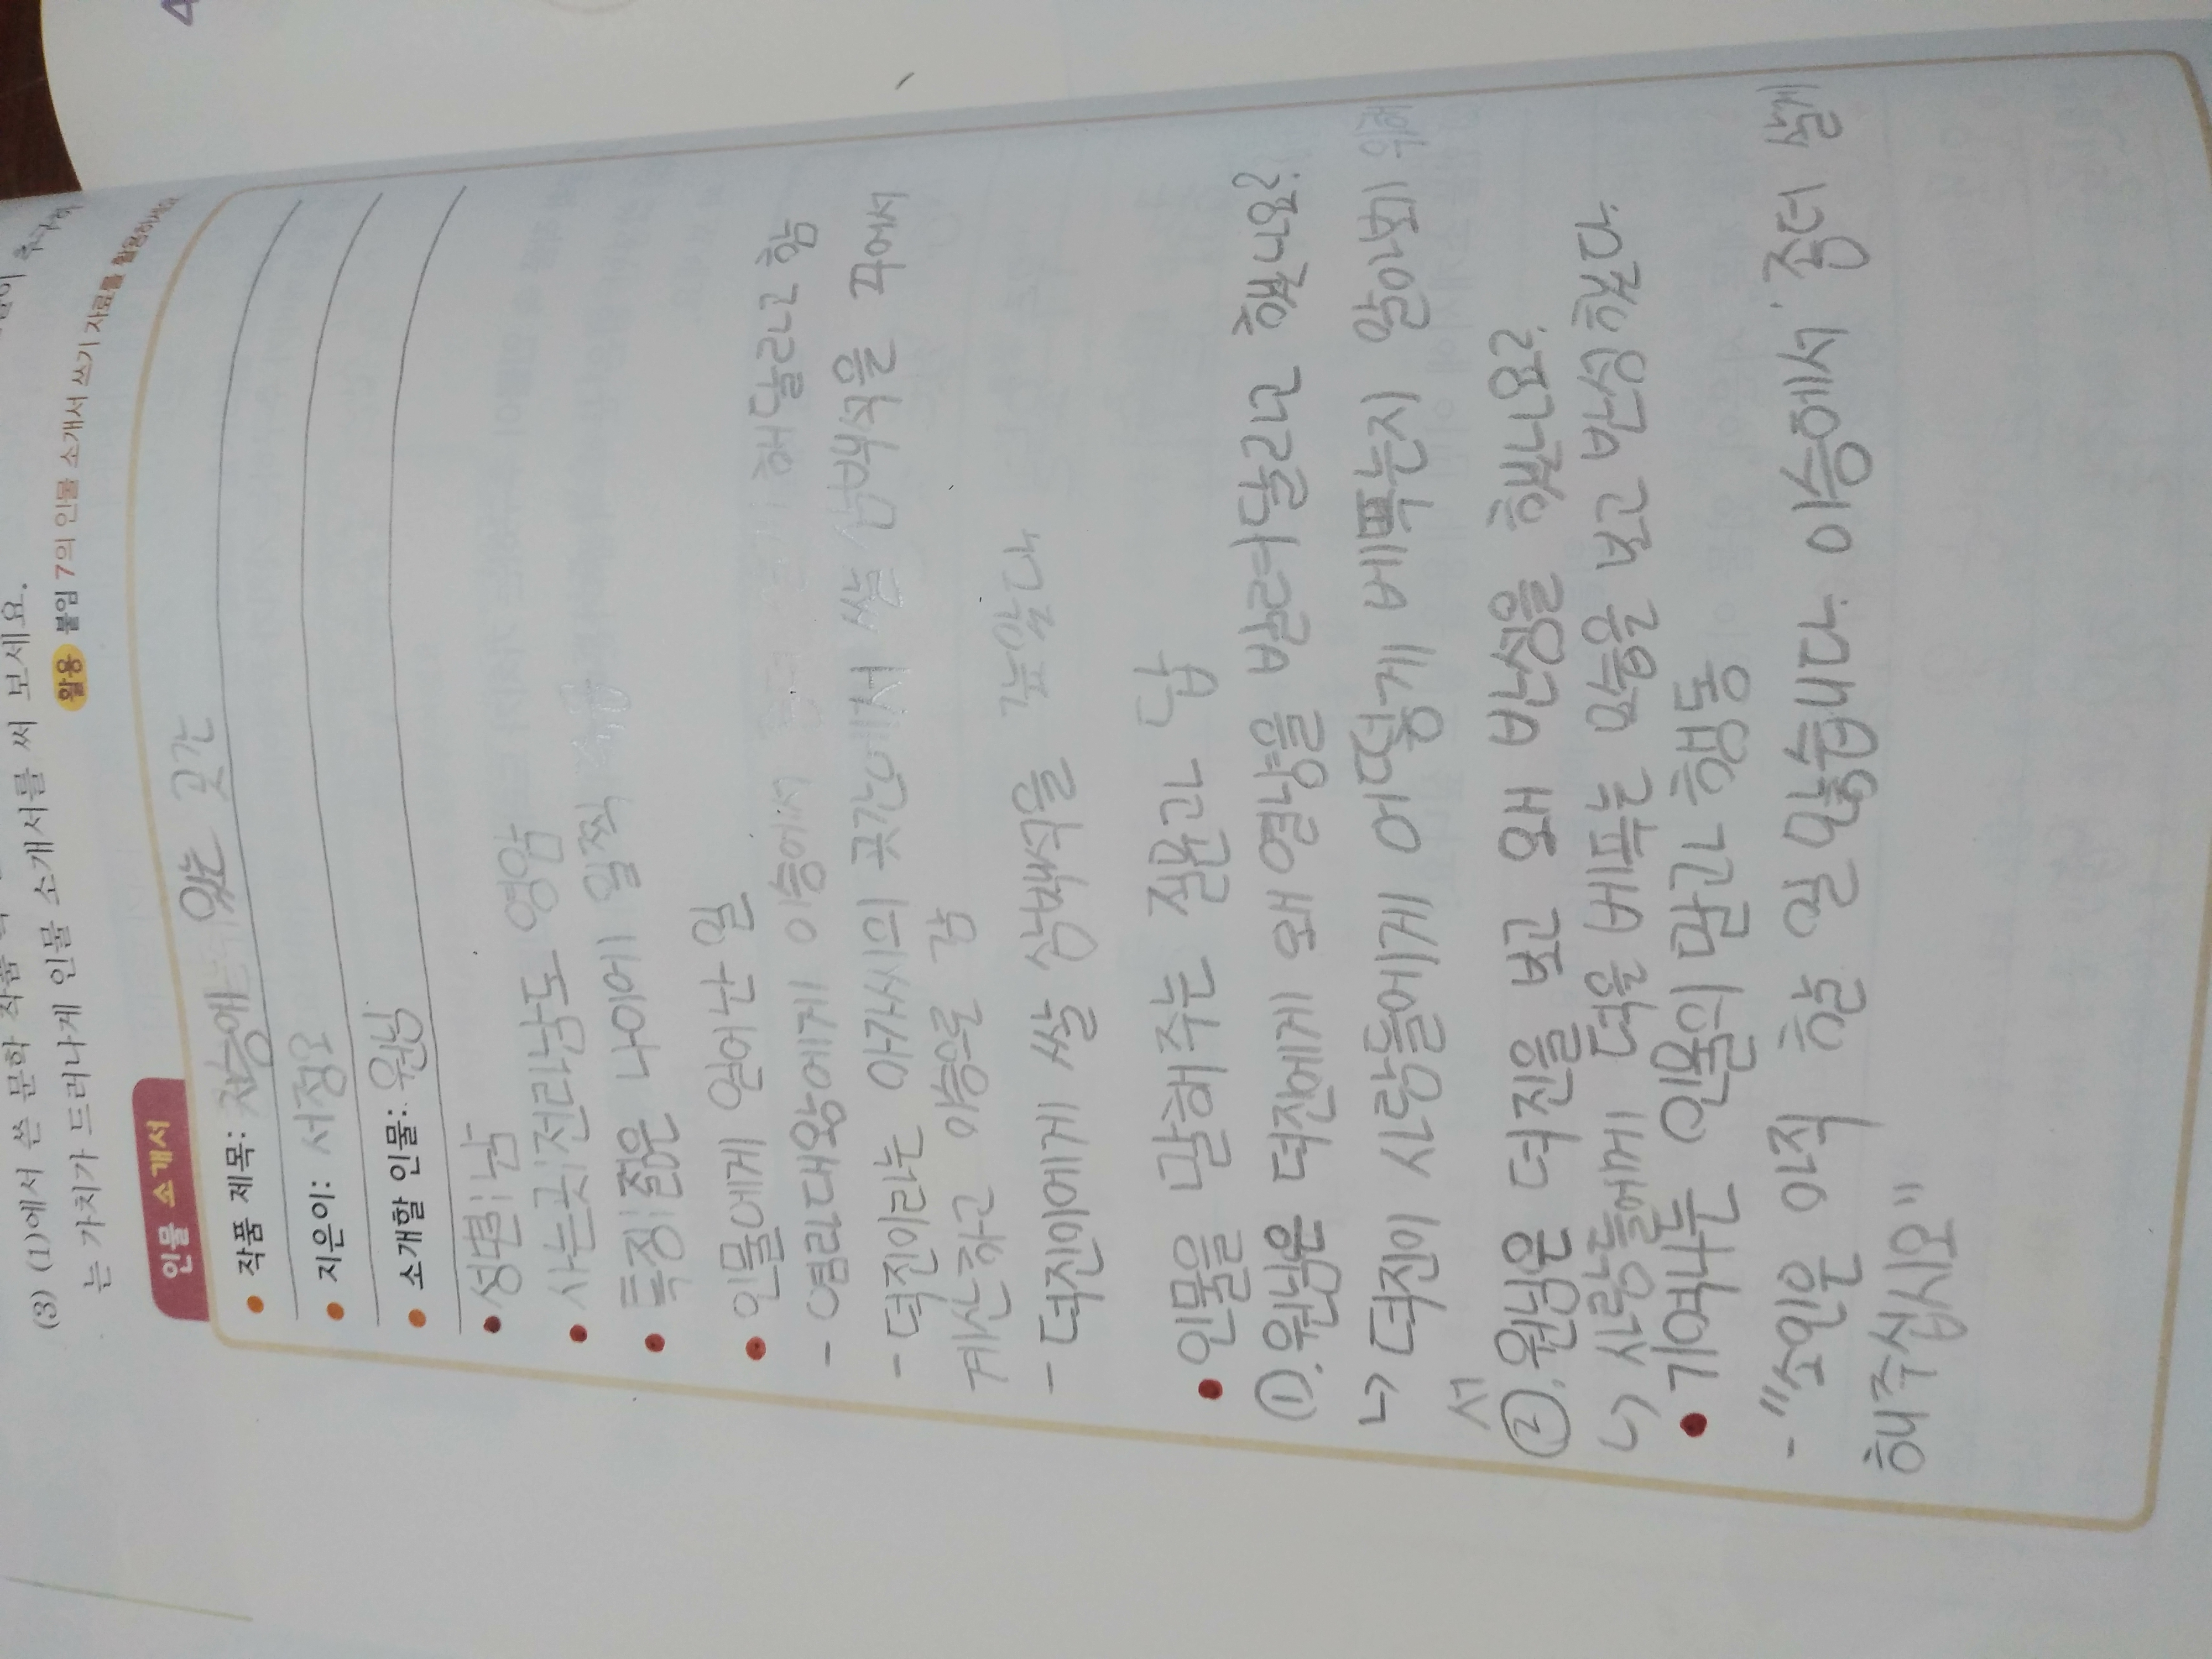 (3) (1)에서 쓴 문학 작품 속
는 가치가 드러나게 인물 소개서를 써 보세요.
활용 붙임 7의 인물 소개서 쓰기 자료를 활용하세요
인물 소개서
작품 제목: 저승에 있는 곳간
지은이: 서정오
소개할 인물: 원님
성별: 남
사는곳: 전라남도 영암
특징: 젊은 나이에 일찍 죽음
인물에게 일어난 일
- 염라대왕에게 이승에서 해달라고 함
- 덕진이라는 아가씨의 곳간에서 쌀 삼백석을 꾸어서
계산하고 이승으로 감
- 덕진이에게 쌀 삼백석을 갚았다
인물을 말해주는 질문고 답
①. 원님은 덕진에게 왜 열냥을 빌려달라고 했나요?
↳ 덕진이 사람들에게 어떻게 베푸는지 알아보기 위해
서
②. 원님은 덕진을 보고 왜 반성을 했나요?
↳ 사람들에게 덕을 베푸는 것을 보고 반성했다.
기억나는 인물의 말고 행동
- "소인은 아직 할 일 많습니다. 이승에서 좀더 살게
해주십시오"